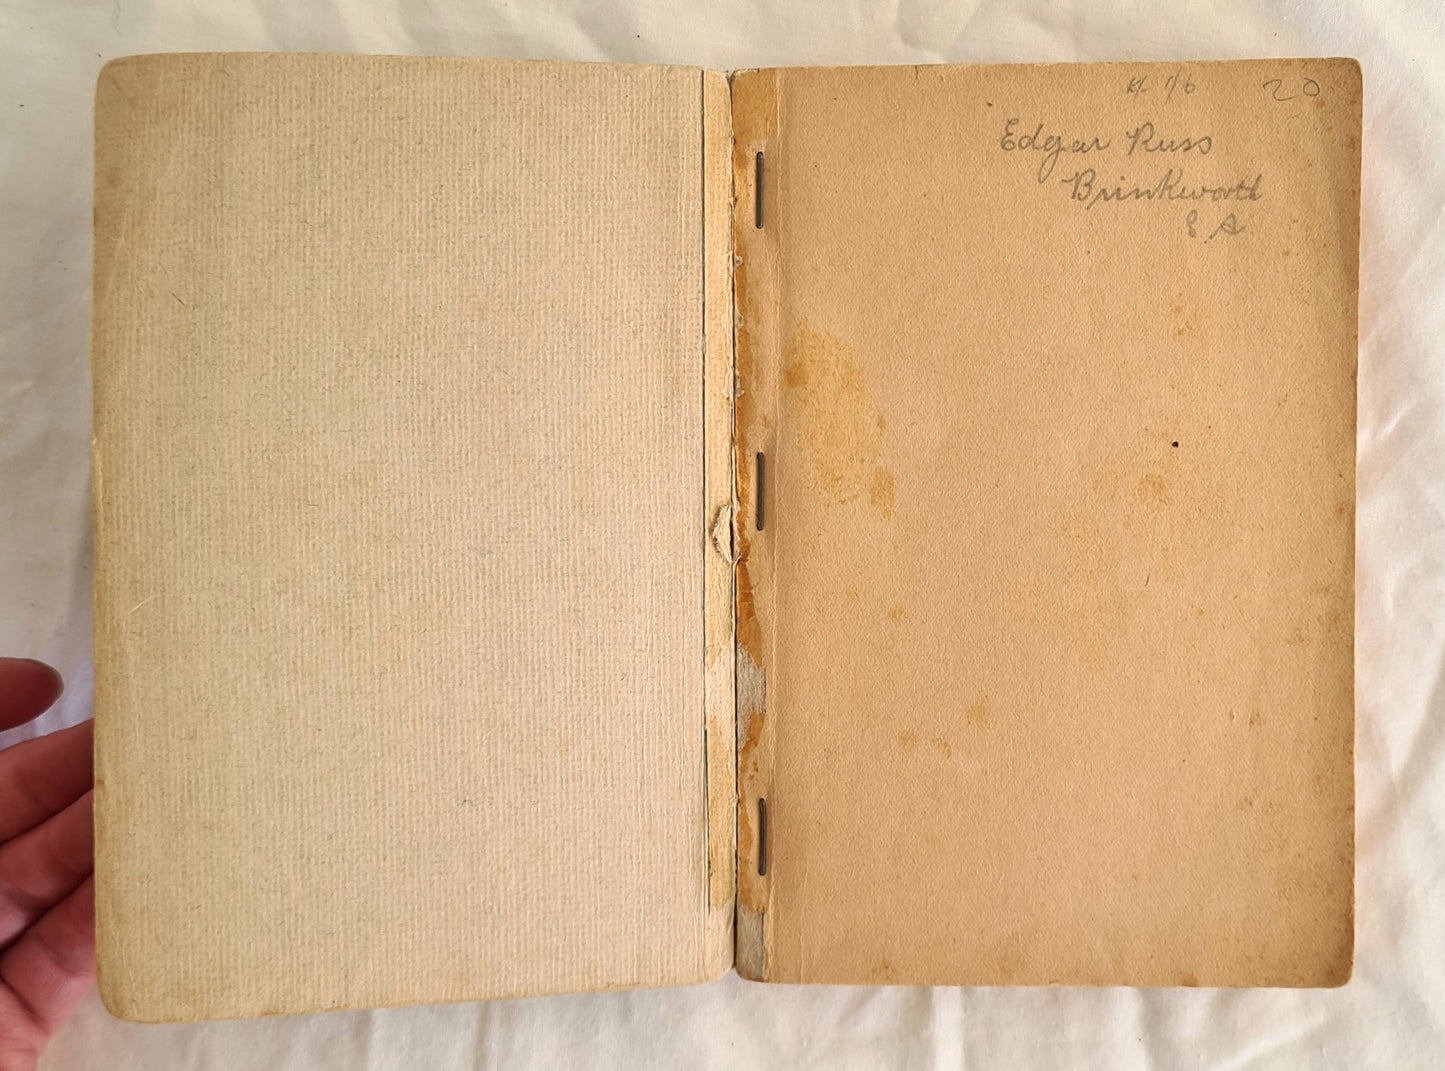 1/6 20
Edgar Russ
Brinkworth
S A